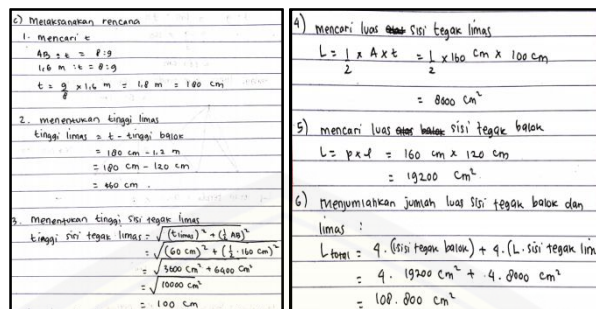 c) Melaksanakan rencana
1. mencari t
AB : t = 8 : 9
1,6 m : t = 8 : 9
t = 9/8 x 1,6 m = 1,8 m = 180 cm
2. menentukan tinggi limas
tinggi limas = t - tinggi balok
= 180 cm - 1.2 m
= 180 cm - 120 cm
= 60 cm .
3. menentukan tinggi sisi tegak limas
tinggi sisi tegak limas = √(t limas)² + (½ AB)²
= √(60 cm)² + (½ . 160 cm)²
= √3600 cm² + 6400 cm²
= √10000 cm²
= 100 cm
4) mencari luas sisi tegak limas
L = 1/2 x A x t = 1/2 x 160 cm x 100 cm
= 8000 cm²
5) mencari luas sisi tegak balok
L = p x l = 160 cm x 120 cm
= 19200 cm²
6) Menjumlahkan jumlah luas sisi tegak balok dan
limas :
L total = 4 . (sisi tegak balok) + 4 . (L . sisi tegak lim
= 4 . 19200 cm² + 4 . 8000 cm²
= 108.800 cm²